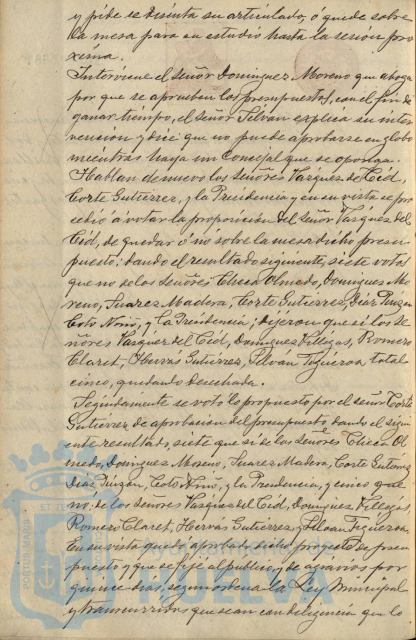 y pide se discuta su articulado, ó quede sobre
la mesa para su estudio hasta la sesión pro
xima.
Interviene el señor Dominguez Moreno que aboga
por que se aprueben los presupuestos, con el fin de
ganar tiempo, el señor Pelván explica su inter
vención y dice que no puede aprobarse en globo
mientras haya un Concejal que se oponga.
Hablan de nuevo los señores Vazquez del Cid,
Corte Gutierrez, y la Presidencia y en su vista se pro
cedió á votar la proposición del señor Vazquez del
Cid, de quedar ó nó sobre la mesa dicho presu
puesto; dando el resultado siguiente, siete votá
que no los señores: Checa Olmedo, Dominguez Mo
reno, Suarez Madera, Corte Gutierrez, Diaz Pinzón
Coto Nuñ, y la Presidencia; dijeron que sí los Se
ñores Vazquez del Cid, Dominguez Villegas, Romero
Claret, Hervás Gutierrez, Pelván Figueroa, total
cinco, quedando desechada.
Seguidamente se votó lo propuesto por el señor Corte
Gutierrez de aprobación del presupuesto dando el sigui
ente resultado, siete que sí de los señores Checa Ol
medo, Dominguez Moreno, Suarez Madera, Corte Gutierrez
Diaz Pinzón, Coto Nuñ, y la Presidencia, y cinco que
nó; de los señores Vazquez del Cid, Dominguez Villegas,
Romero Claret, Hervás Gutierrez, Pelván Figueroa.
En su vista quedó aprobado dicho proyecto de presu
puesto y que se fije al público, y de agravios por
quince días, según ordena la Ley Municipal
y transcurridos que sean con diligencia que lo